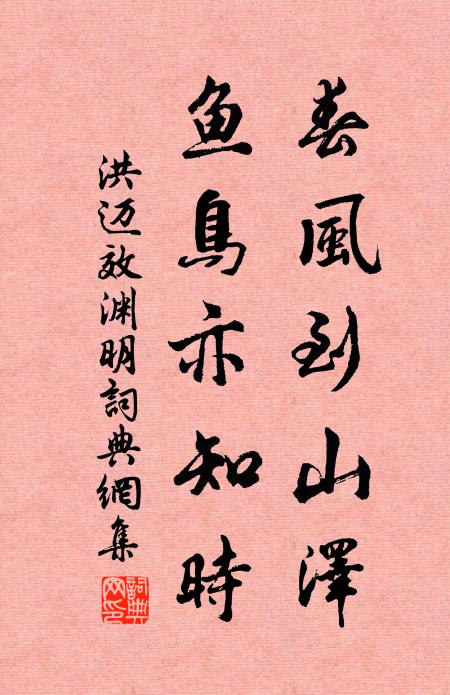 春風到山澤
鱼鳥亦知時
洪迈效渊明詞典網集
詞典网印